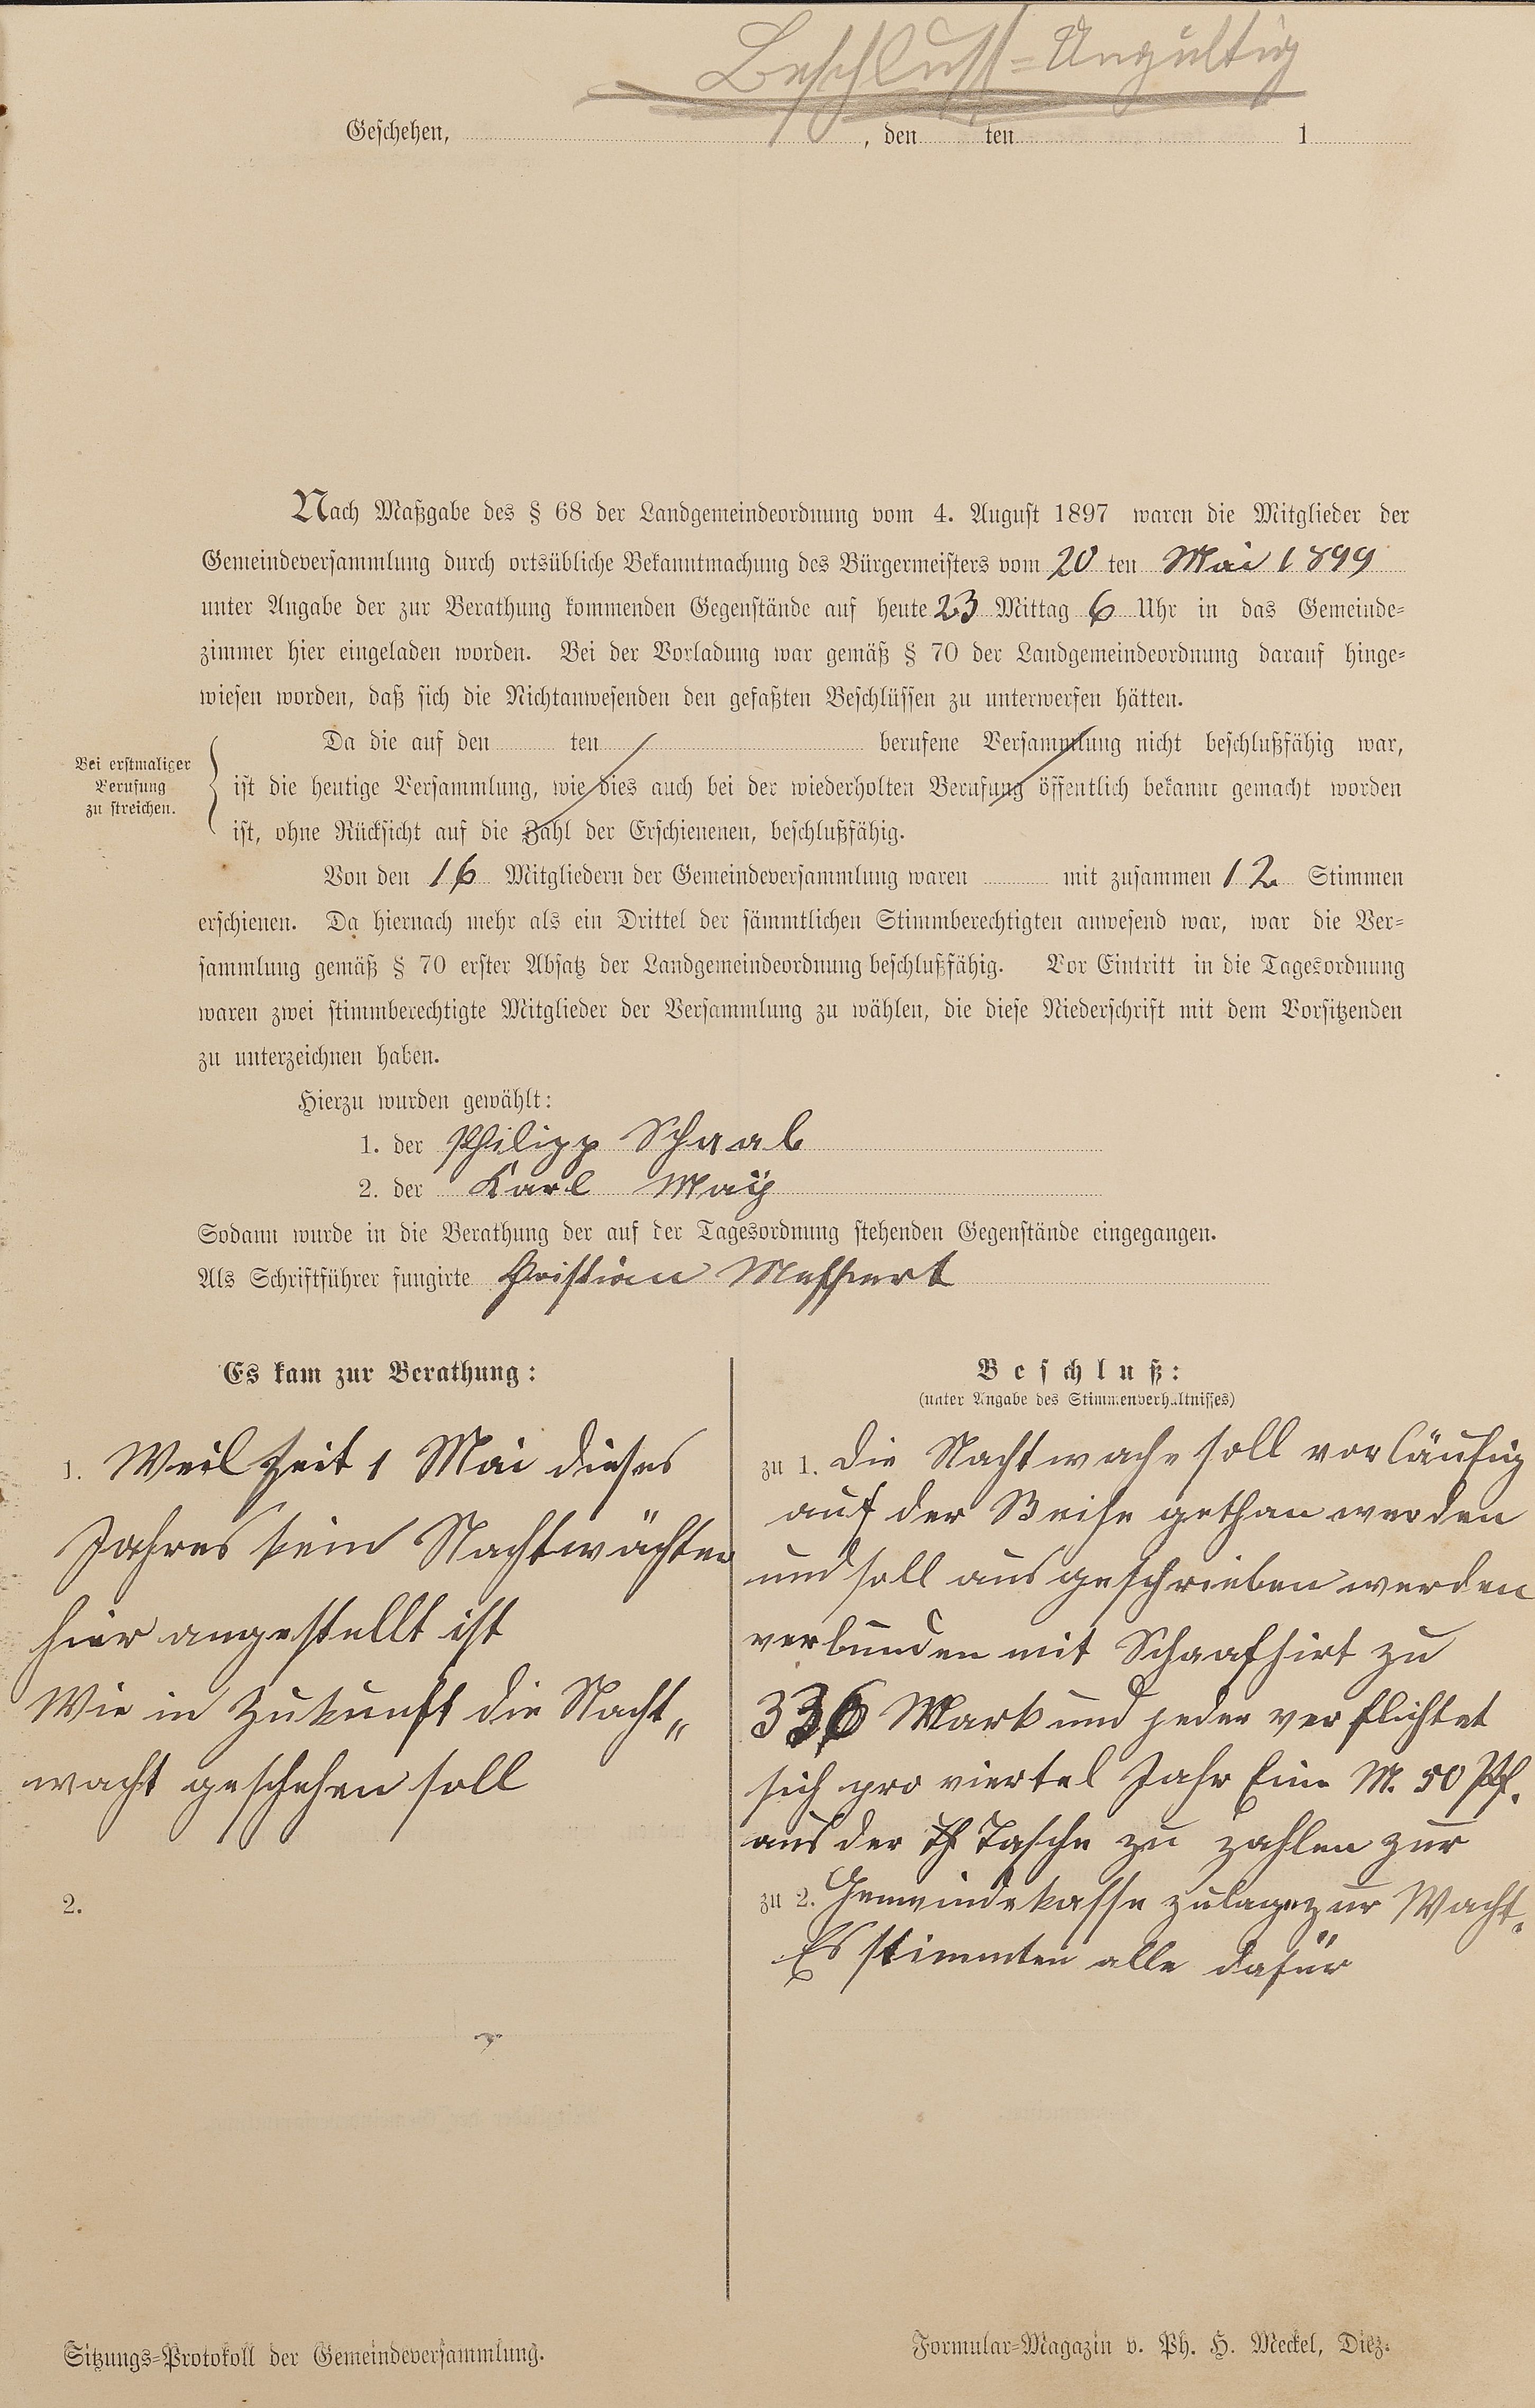 Beschluss=Ungültig
Geschehen, , den ten 1
Nach Maßgabe des § 68 der Landgemeindeordnung vom 4. August 1897 waren die Mitglieder der
Gemeindeversammlung durch ortsübliche Bekanntmachung des Bürgermeisters vom 20 ten Mai 1899
unter Angabe der zur Berathung kommenden Gegenstände auf heute 23 Mittag 6 Uhr in das Gemeinde=
zimmer hier eingeladen worden. Bei der Vorladung war gemäß § 70 der Landgemeindeordnung darauf hinge=
wiesen worden, daß sich die Nichtanwesenden den gefaßten Beschlüssen zu unterwerfen hätten.
Bei erstmaliger
Berufung
zu streichen.
Da die auf den ten berufene Versammlung nicht beschlußfähig war,
ist die heutige Versammlung, wie dies auch bei der wiederholten Berufung öffentlich bekannt gemacht worden
ist, ohne Rücksicht auf die Zahl der Erschienenen, beschlußfähig.
Von den 16 Mitgliedern der Gemeindeversammlung waren mit zusammen 12 Stimmen
erschienen. Da hiernach mehr als ein Drittel der sämmtlichen Stimmberechtigten anwesend war, war die Ver=
sammlung gemäß § 70 erster Absatz der Landgemeindeordnung beschlußfähig. Vor Eintritt in die Tagesordnung
waren zwei stimmberechtigte Mitglieder der Versammlung zu wählen, die diese Niederschrift mit dem Vorsitzenden
zu unterzeichnen haben.
Hierzu wurden gewählt:
1. der Philipp Schaab
2. der Karl Maÿ
Sodann wurde in die Berathung der auf der Tagesordnung stehenden Gegenstände eingegangen.
Als Schriftführer fungirte Christian Meffert
Es kam zur Berathung:
1. Weil seit 1 Mai dieses
Jahres kein Nachtwächter
hier angestellt ist
Wie in Zukunft die Nacht„
wacht geschehen soll
2.
Beschluß:
(unter Angabe des Stimmenverhältnisses)
zu 1. Die Nachtwache soll vorläufig
auf der Reihe gethan werden
und soll ausgeschrieben werden
verbunden mit Schaafhirt zu
336 Mark und jeder verflichtet
sich pro viertel Jahr Eine M. 50 Pf.
aus der Tasche zu zahlen zur
zu 2. Gemeindekasse zulage zur Wacht.
Es stimmten alle dafür
Sitzungs=Protokoll der Gemeindeversammlung.
Formular=Magazin v. Ph. H. Meckel, Diez.